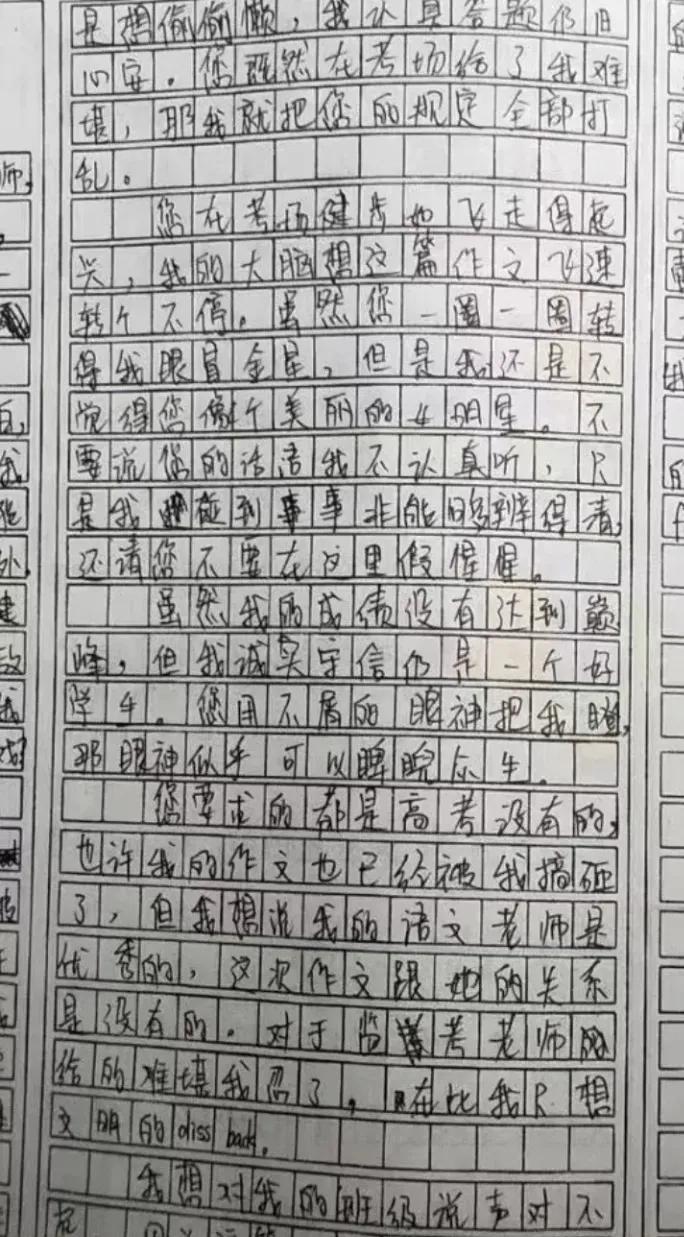 是想偷偷懒，我认真答题仍旧
心安。您既然在考场给了我难
堪，那我就把您的规定全部打
乱。
您在考场健步如飞走得起
兴，我的大脑想这篇作文飞速
转个不停。虽然您一圈一圈转
得我眼冒金星，但是我还是不
觉得您像个美丽的女明星。不
要说您的话语我不认真听，只
是我碰到事事非能够辨得清，
还请您不要在这里假惺惺。
虽然我的成绩没有达到巅
峰，但我诚实守信仍是一个好
学生。您用不屑的眼神把我瞪，
那眼神似乎可以睥睨众生。
您要求的都是高考没有的，
也许我的作文也已经被我搞砸
了，但我想说我的语文老师是
优秀的，这次作文跟她的关系
是没有的。对于监考老师的
给的难堪我忍了，在此我只想
文明的diss back。
我想对我的班级说声对不
师，
一
我
处，
建
我
的
我